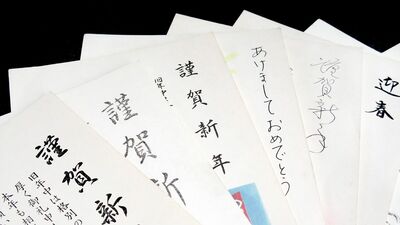 謹賀新
旧年中は格別の
厚く御礼申
本年も相
謹賀新
旧年中
謹賀新年
あけましておめでとう
謹賀新年
迎春